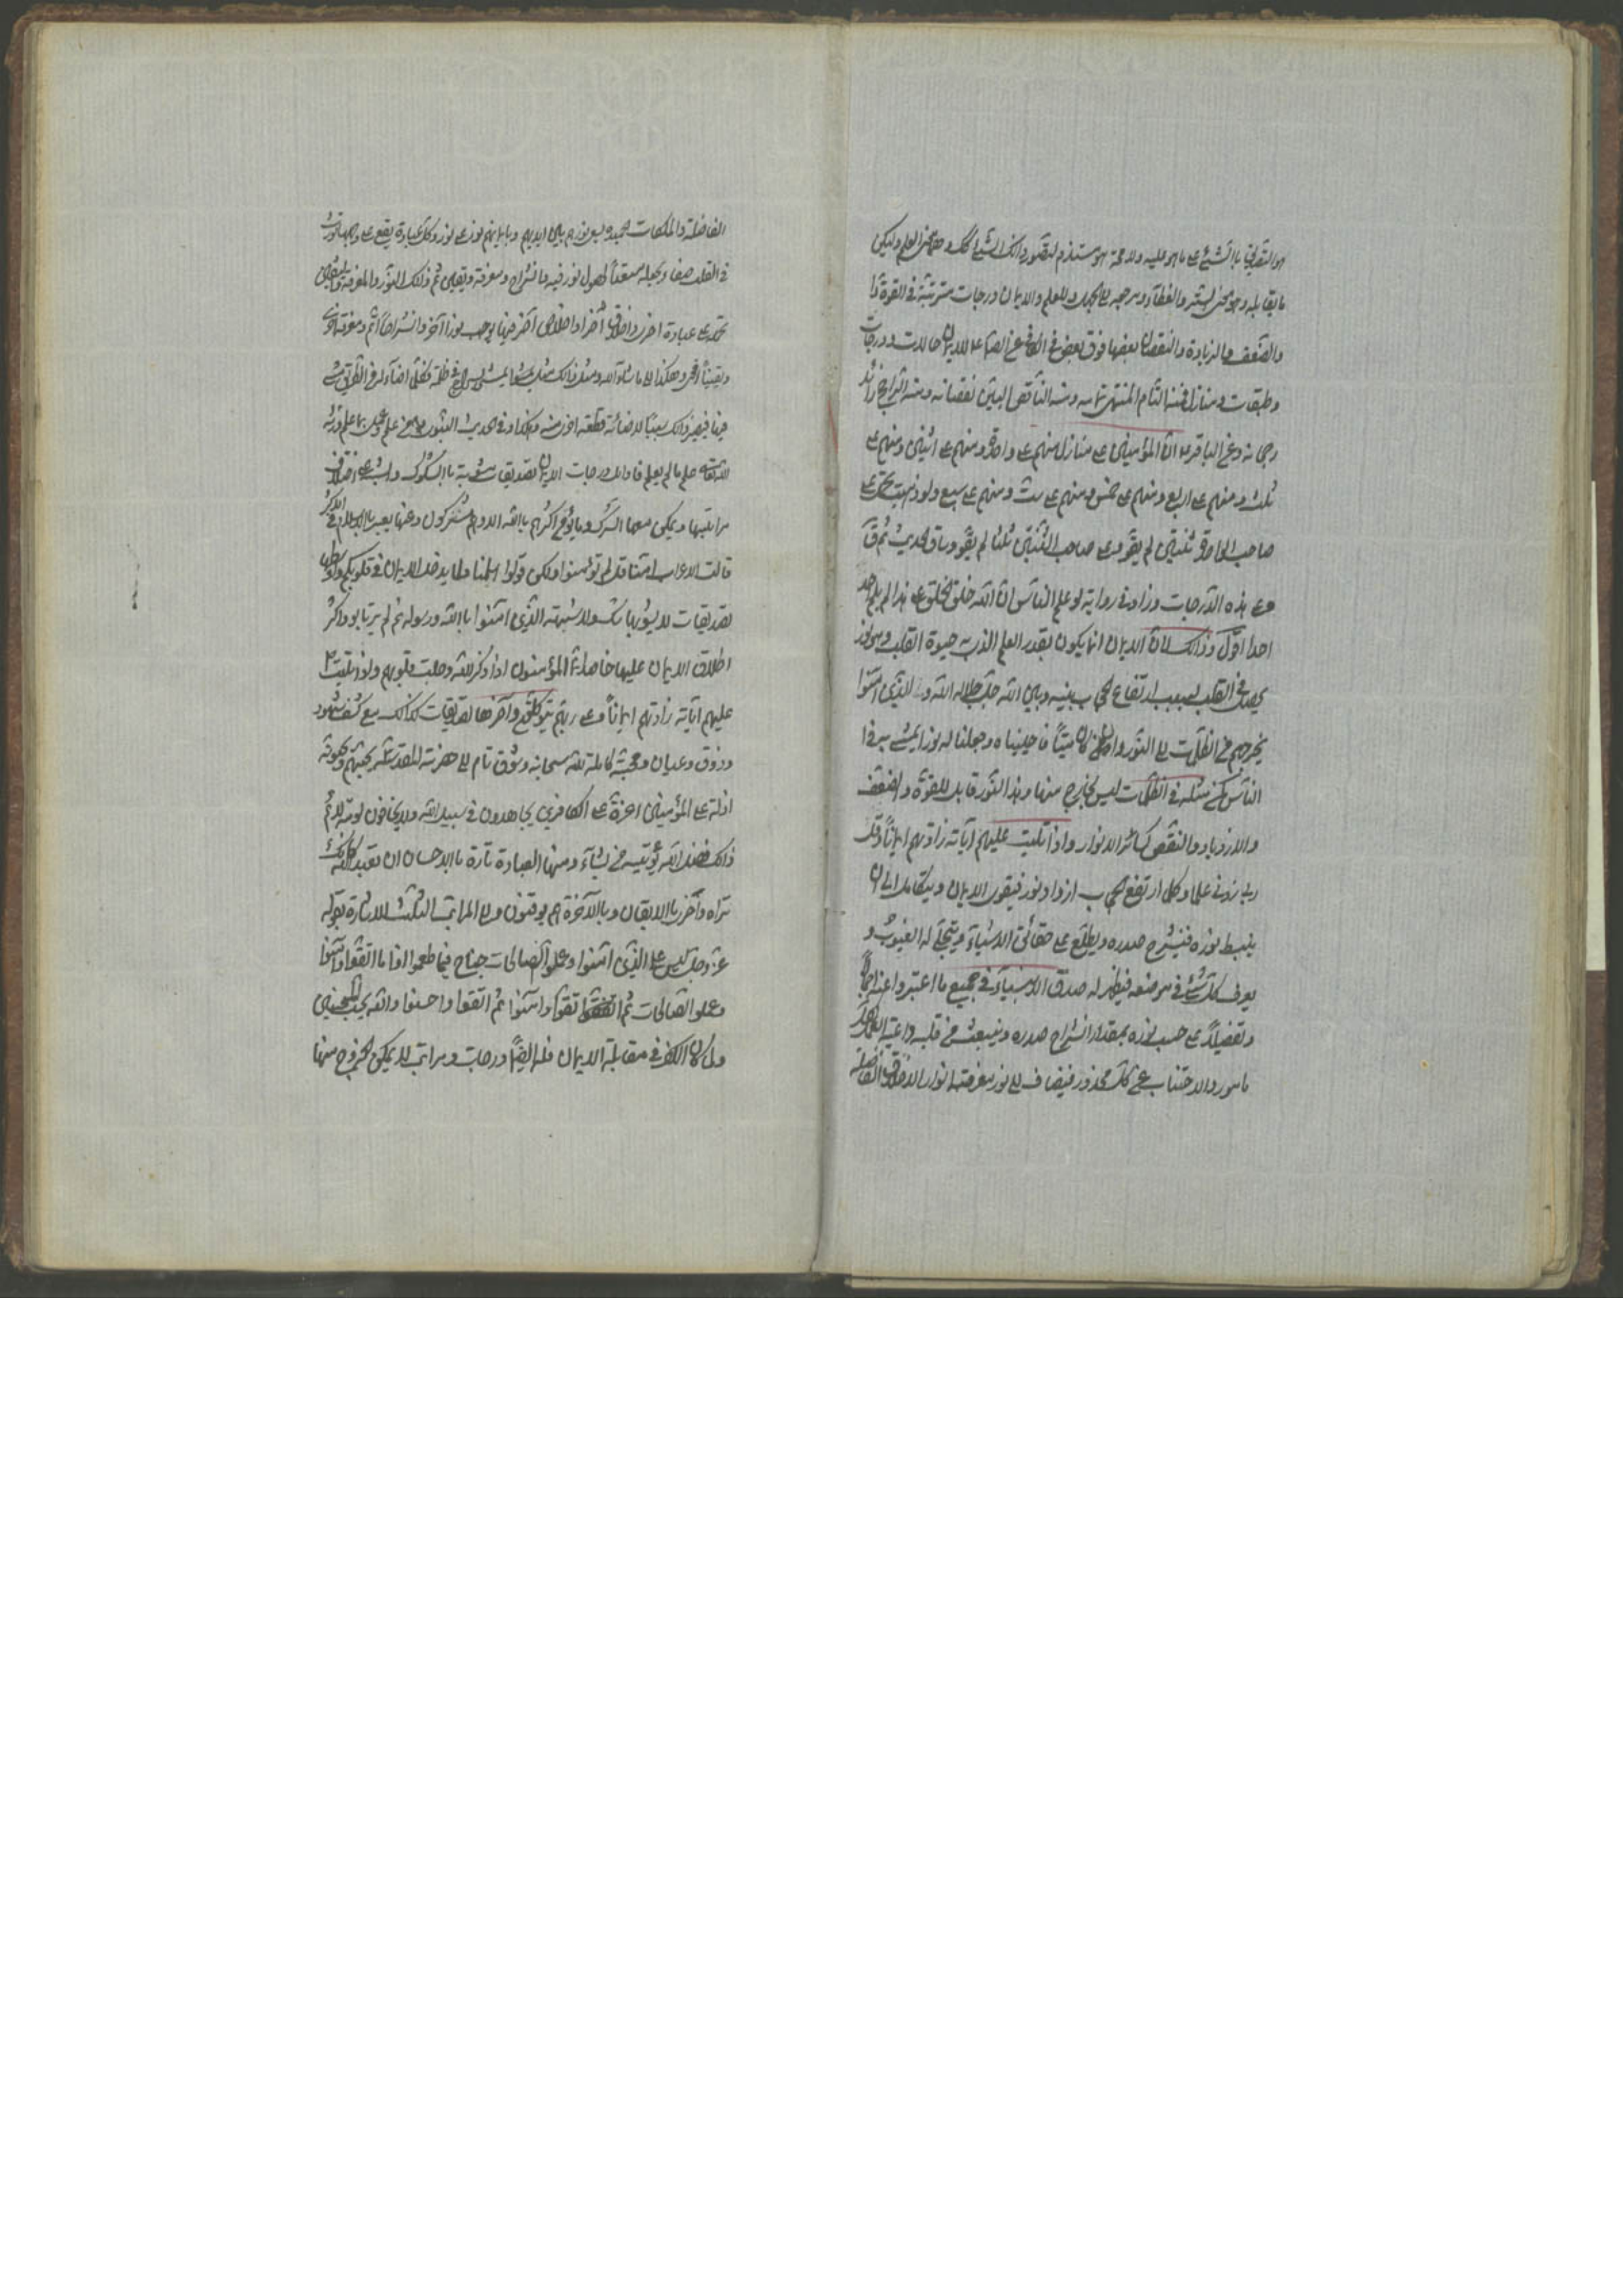 هو التصديق بالشئ على ما هو عليه ولا محة هو مستلزم لتصور ذالك الشئ كك وهما معنى العلم والكفر
ما يقابله وهو معنى الستر والغطاء ومرجعه الى الجهل وللعلم والايمان درجات مترتبة في القوة
والضعف والزيادة والنقصان بعضها فوق بعض في الكافي عن الصادق للايمان حالات ودرجات
وطبقات ومنازل فمنه التام المنتهى تمامه ومنه الناقص البين نقصانه ومنه الراجح الزائد
رجحانه وعن الباقر ان المؤمنين على منازل منهم على واحدة ومنهم على اثنين ومنهم على
ثلث ومنهم على اربع ومنهم على خمس ومنهم على ست ومنهم على سبع ولو ذهبت تحمل على
صاحب الواحدة ثنتين لم يقو وعلى صاحب الثنتين ثلثا لم يقو وساق الحديث ثم ق
وعلى هذه الدرجات وزاد في رواية لو علم الناس ان الله خلق الخلق على هذا لم يلم احد
احدا اقول وذالك لان الايمان انما يكون بقدر العلم الذى به حيوة القلب وهو نور
يحصل في القلب بسبب ارتفاع الحجاب بينه وبين الله جل جلاله الله ولى الذين امنوا
يخرجهم من الظلمات الى النور اومن كان ميتا فاحييناه وجعلنا له نورا يمشى به في
الناس كمن مثله في الظلمات ليس بخارج منها وهذا النور قابل للقوة والضعف
والازدياد والنقص كسائر الانوار واذا تليت عليهم آياته زادتهم ايمانا وقل
رب زدنى علما وكلما ارتفع الحجاب ازداد نور فيقوى الايمان ويتكامل الى ان
ينبسط نوره فينشرح صدره ويطلع على حقائق الاشياء ويتجلى له الغيوب و
يعرف كل شئ في موضعه فيظهر له صدق الانبياء في جميع ما اخبروا عنه اجمالا
وتفصيلا على حسب نوره بمقدار انشراح صدره وينبعث من قلبه داعية العمل بكل
مامور والاجتناب عن كل محذور فيضاف الى نور معرفته انوار الاخلاق الفاضلة
الفاضلة والملكات الحميدة يسعى نورهم بين ايديهم وبايمانهم نور على نور وكل عبادة يقع على وجهها تورث
في القلب صفاء يجعله مستعدا لحصول نور فيه وانشراح ومعرفة ويقين ثم ذالك النور والمعرفة واليقين
تحمله على عبادة اخرى واخلاق اخر واخلاص آخر فيها يوجب نورا آخر وانشراحا اتم ومعرفة اخرى
ويقينا اقوى وهكذا الى ما شاء الله ومثل ذالك مثل من يمشى بسراج في ظلمة فكلما اضاء له من الطريق مشى
فيها فيصير ذالك سببا لاضائة قطعة اخرى منه وهكذا وفي الحديث النبوى من علم وعمل بما علم ورثه
الله علم ما لم يعلم فاوائل درجات الايمان تصديقات مشوبة بالشكوك والشبه على اختلاف
مراتبها ويمكن معها الشرك وما يؤمن اكثرهم بالله الا وهم مشركون وعنها يعبر بالاسلام في الاكثر
قالت الاعراب امنا قل لم تؤمنوا ولكن قولوا اسلمنا ولما يدخل الايمان في قلوبكم واواسطها
تصديقات لا يشوبها شك ولا شبهة الذين امنوا بالله ورسوله ثم لم يرتابوا واكثر
اطلاق الايمان عليها خاصة انما المؤمنون اذا ذكر الله وجلت قلوبهم واذا تليت
عليهم آياته زادتهم ايمانا وعلى ربهم يتوكلون واخرها تصديقات كذالك مع كشف وشهود
وذوق وعيان ومحبة كاملة لله سبحانه وشوق تام الى حضرته المقدسة يحبهم ويحبونه
اذلة على المؤمنين اعزة على الكافرين يجاهدون في سبيل الله ولا يخافون لومة لائم
ذالك فضل الله يؤتيه من يشاء وعنها العبارة تارة بالاحسان ان تعبد الله كانك
تراه واخرى بالايقان وبالآخرة هم يوقنون والى المراتب الثلث الاشارة بقوله
عز وجل ليس على الذين امنوا وعملوا الصالحات جناح فيما طعموا اذا ما اتقوا وآمنوا
وعملوا الصالحات ثم اتقوا وامنوا ثم اتقوا واحسنوا والله يحب المحسنين
ولما كان الكفر في مقابلة الايمان فله ايضا درجات ومراتب لا يمكن الخروج منها